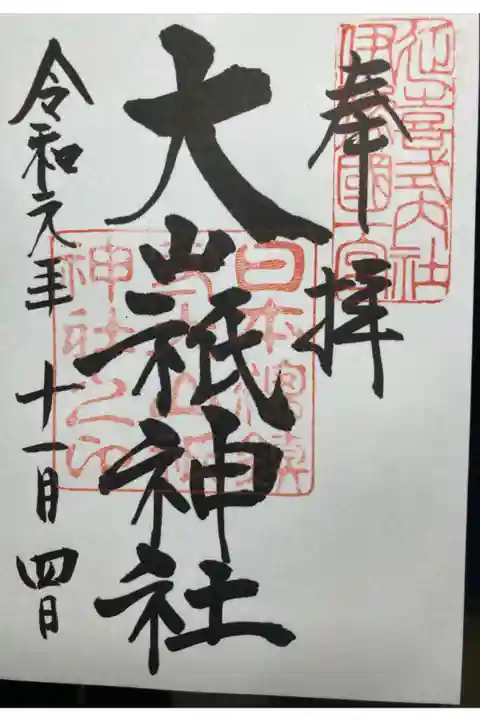 奉拝
延喜式内社
伊豫國一宮
大山祇神社
日本總鎮
守大山祇
神社之印
令和元年 十一月四日